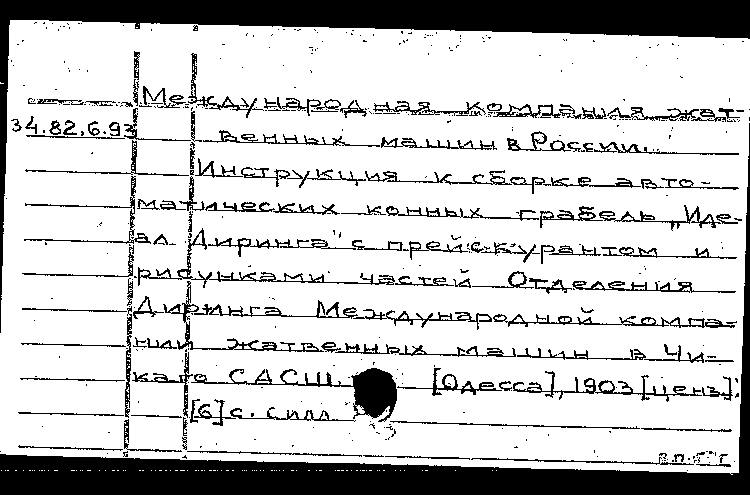 Международная компания жат-
34.82.6.93
венных машин в России.
Инструкция к сборке авто-
матических конных грабель „Иде-
ал Диринга" с прейскурантом и
рисунками частей Отделения
Диринга Международной компа-
нии жатвенных машин в Чи-
каго САСШ. [Одесса], 1903 [ценз].
[6] с. с илл.